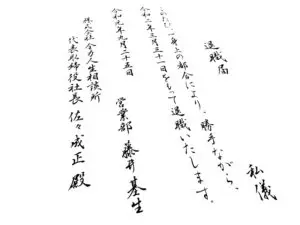 退職届
私儀
このたび一身上の都合により、勝手ながら、
令和二年三月三十一日をもって退職いたします。
令和元年九月二十五日
営業部 藤井基生
株式会社全力人生相談所
代表取締役社長 佐々成正 殿